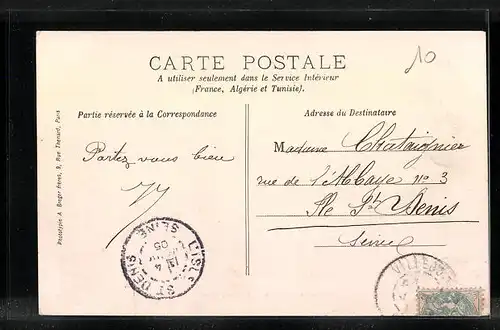 CARTE POSTALE
10
A utiliser seulement dans le Service Intérieur
(France, Algérie et Tunisie).
Partie réservée à la Correspondance
Adresse du Destinataire
Portez vous bien
Madame Chataignier
rue de l'Abbaye no 3
Ile St Denis
Seine
Phototypie A. Breger frères, 9, Rue Thénard, Paris
L'ISLE ST DENIS
SEINE
4
05